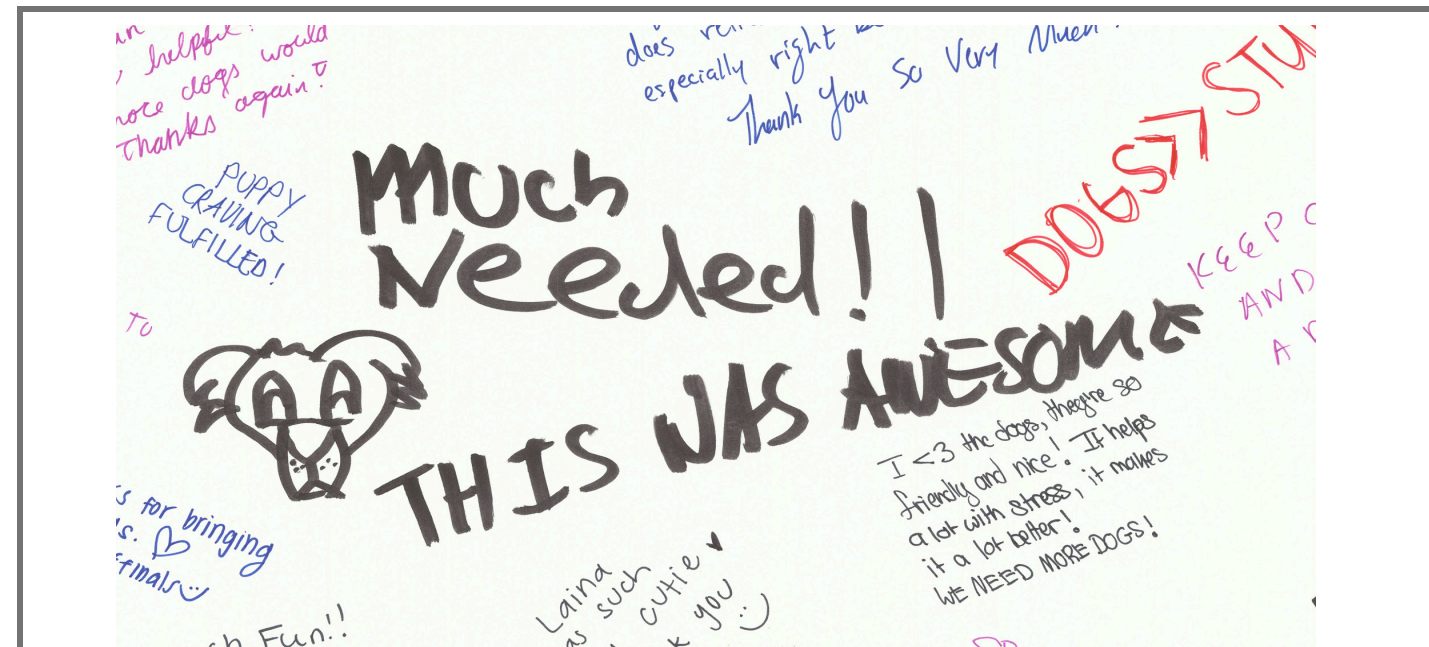 helpful!
more dogs would
Thanks again!
does
especially right
Thank You So Very Much!
PUPPY
CRAVING
FULFILLED!
Much
Needed!!
DOGS>>STU
KEEP C
AND
A
TO
THIS WAS AWESOME
I <3 the dogs, they're so
friendly and nice! It helps
a lot with stress, it makes
it a lot better!
WE NEED MORE DOGS!
s for bringing
s. ♡
finals
Laina
as such
cutie ♥
k you
:)
ch Fun!!